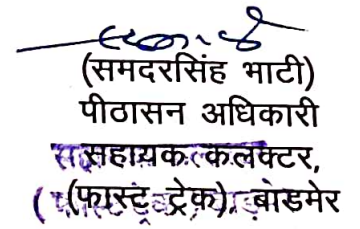 (समदरसिंह भाटी)
पीठासन अधिकारी
सहायक कलक्टर,
(फास्ट ट्रेक), बाडमेर